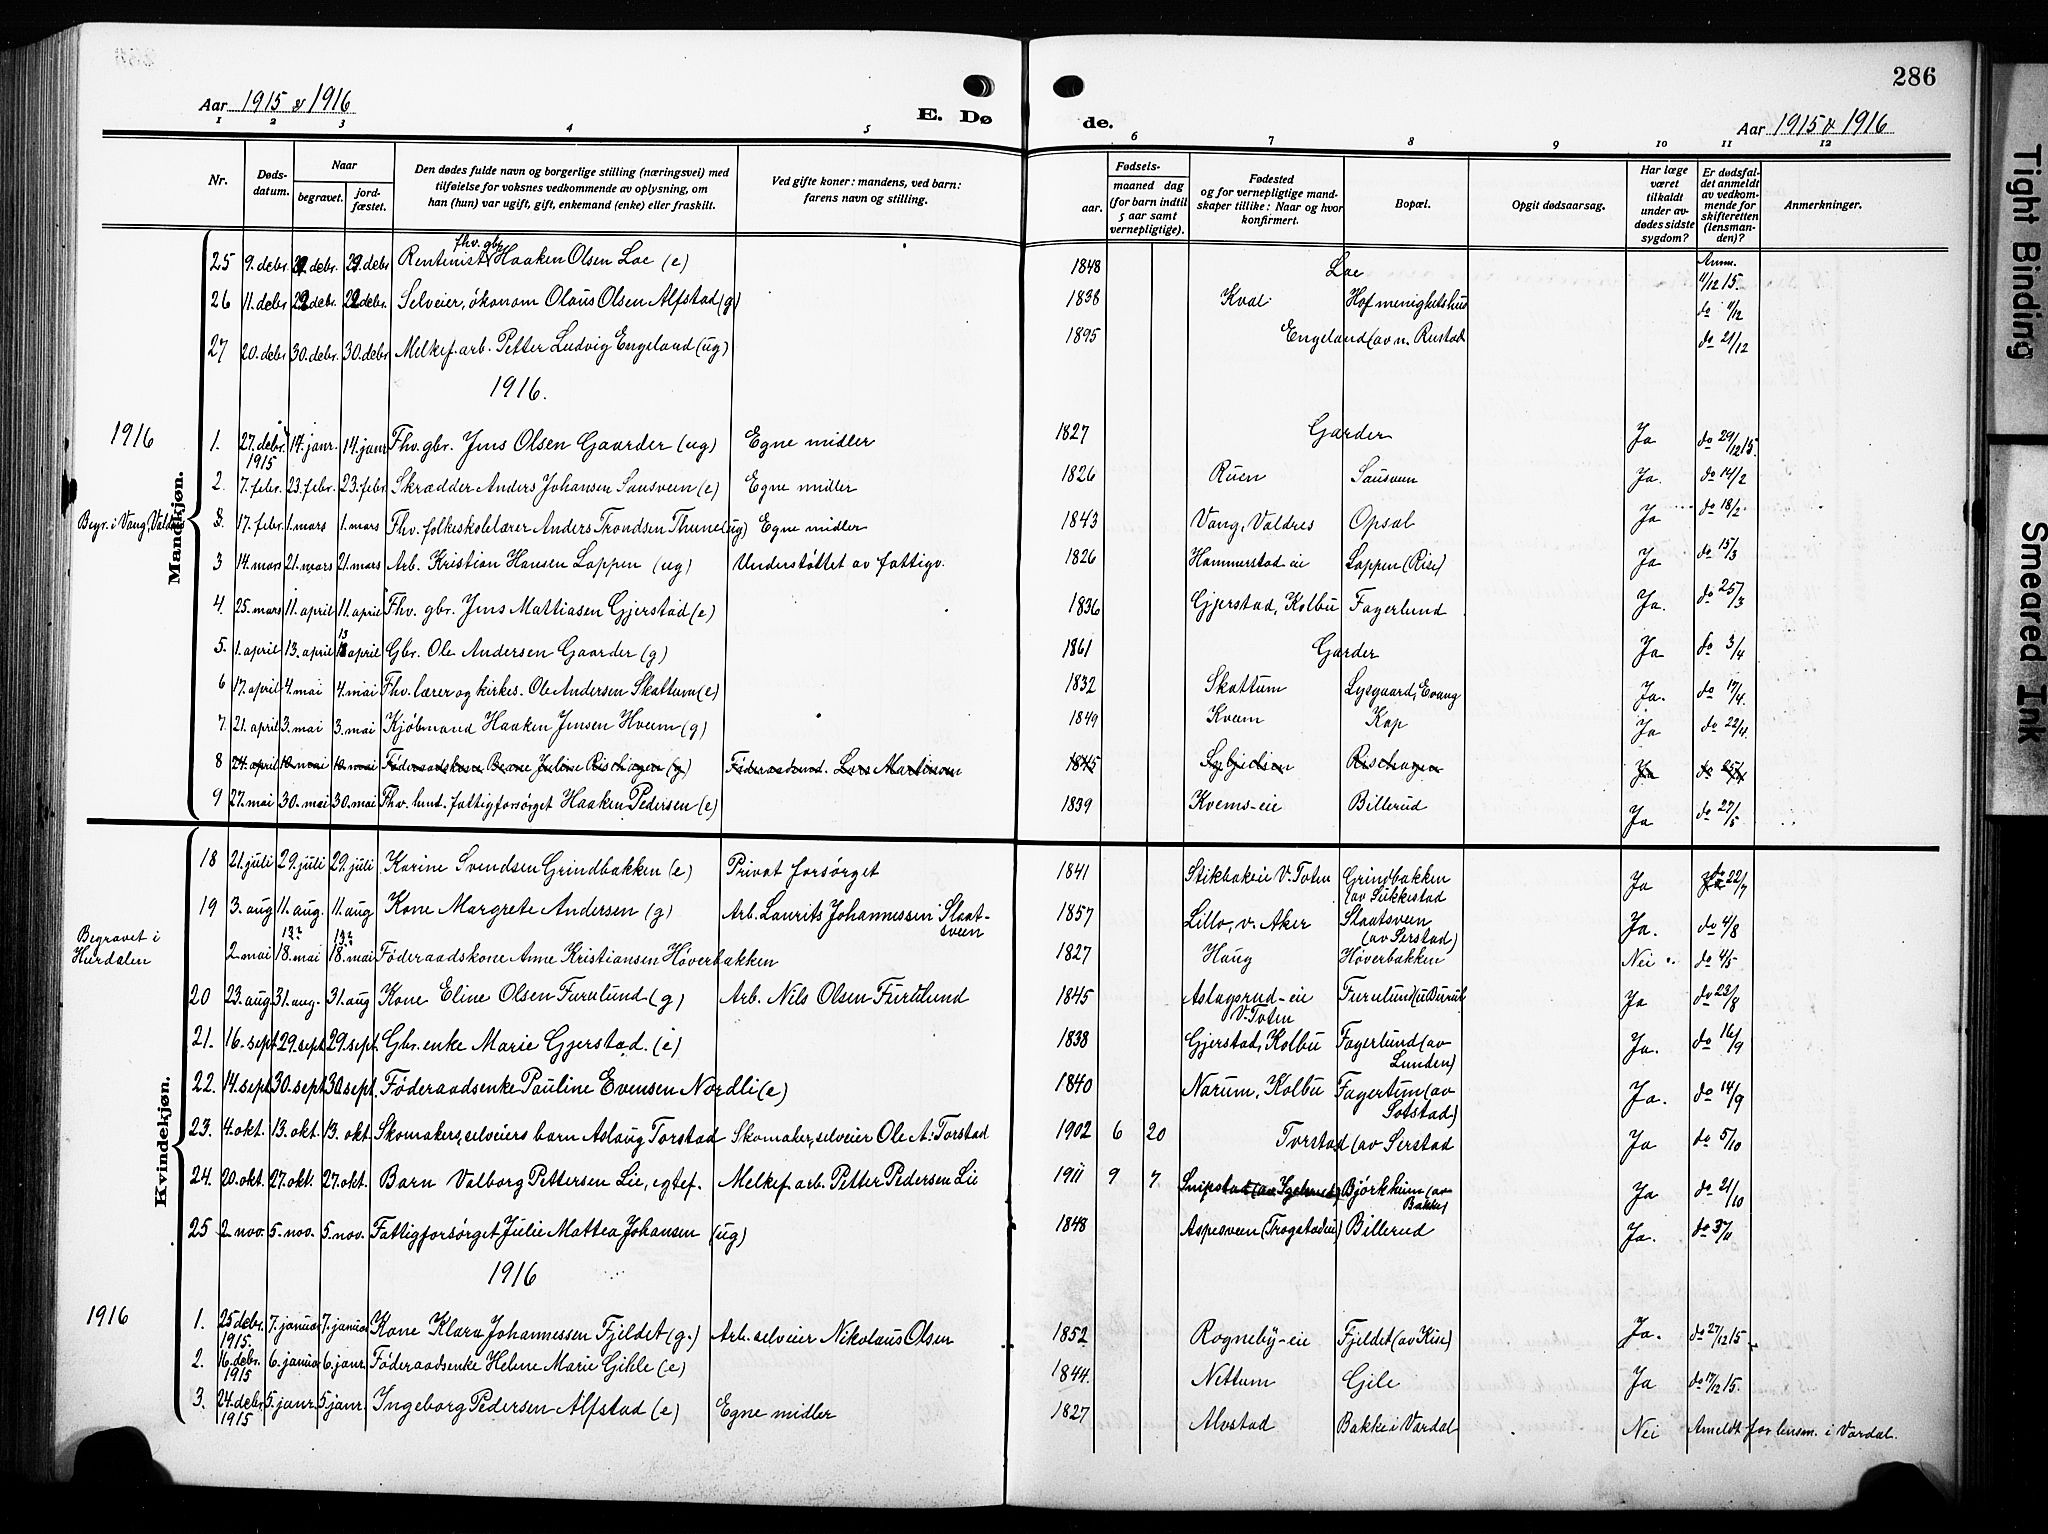 286
Aar 1915 & 1916
E. Dø de.
Aar 1915 & 1916
1 2 3 4 5 6 7 8 9 10 11 12
Nr. Døds-datum. Naar begravet. jord-fæstet. Den dødes fulde navn og borgerlige stilling (næringsvei) med tilføielse for voksnes vedkommende av oplysning, om han (hun) var ugift, gift, enkemand (enke) eller fraskilt. Ved gifte koner: mandens, ved barn: farens navn og stilling. Fødsels- aar. maaned dag (for barn indtil 5 aar samt vernepligtige). Fødested og for vernepligtige mandskaper tillike: Naar og hvor konfirmert. Bopæl. Opgit dødsaarsag. Har læge været tilkaldt under avdødes sidste sygdom? Er dødsfaldet anmeldt av vedkommende for skifteretten (lensmanden)? Anmerkninger.
Mandkjøn.
25 9. debr. 29. debr. 29. debr Rentenist, fhv. gbr. Haaken Olsen Loe (e) 1848 Loe Anm. 11/12 15.
26 11. debr 22. debr. 22. debr. Selveier, økonom Olaus Olsen Alfstad (g) 1838 Kval Hof menighetshus do 11/12
27 20. debr 30. debr. 30. debr Melkef. arb. Petter Ludvig Engeland (ug) 1895 Engeland (av n. Rustad do 21/12
1916.
1916 1. 27. debr. 1915 14. janr. 14. janr Fhv. gbr. Jens Olsen Gaarder (ug) Egne midler 1827 Garder Ja do 29/12 15.
2. 7. febr. 23. febr. 23. febr Skrædder Anders Johansen Sausveen (e) Egne midler 1826 Ruen Sausveen Ja. do 14/2
Begr. i Vang, Valdres 17. febr. 1. mars 1. mars Fhv. folkeskolelærer Anders Trondsen Thune (ug) Egne midler 1843 Vang, Valdres Opsal Ja do 18/2
3 14. mars 21. mars 21. mars Arb. Kristian Hansen Loppen (ug) Understøttet av fattigv. 1826 Hammerstad-eie Loppen (Rise) Ja do 15/3
4. 25. mars 11. april 11. april Fhv. gbr. Jens Mattiasen Gjerstad (e) 1836 Gjerstad, Kolbu Fagerlund Ja. do 25/3
5. 1. april 13. april 13 april Gbr. Ole Andersen Gaarder (g) 1861 Garder Ja do 3/4
6 17. april 4. mai 4. mai Fhv. lærer og kirkes. Ole Andersen Skattum (e) 1832 Skattum Lysgaard, Evang Ja. do 17/4.
7. 21. april 3. mai 3. mai Kjøbmand Haaken Jensen Hveem (g) 1849 Kveem Kap Ja do 22/4.
8 24. april 10. mai 10. mai Føderaadskone Beane Juline Rischagen (g) Føderaadsmd. Lars Martinsen 1845 Rischagen Ja do 25/4
9 27. mai 30. mai 30. mai Fhv. lensm. fattigforsørget Haaken Pedersen (e) 1839 Kvems-eie Billerud Ja do 27/5
Kvindekjøn.
18 21. juli 29. juli 29. juli Karine Svendsen Grindbakken (e) Privat forsørget 1841 Stikbakeie V. Toten Grindbakken (av Sukkestad Ja do 22/7
19 3. aug 11. aug. 11. aug Kone Margrete Andersen (g) Arb. Laurits Johannessen Slaatsveen 1857 Lillo, v. Aker Slaatsveen (av Serstad) Ja. do 4/8
Begravet i Hurdalen 2. mai 13? 18. mai 13? 18. mai Føderaadskone Anne Kristiansen Høverbakken 1827 Haug Høverbakken Nei do 4/5
20 23. aug 31. aug. 31. aug Kone Eline Olsen Furulund (g) Arb. Nils Olsen Furulund 1845 Aslagsrud-eie V. Toten Furulund (u Burul Ja do 23/8
21. 16. sept 29. sept 29. sept. Gbr. enke Marie Gjerstad. (e) 1838 Gjerstad, Kolbu Fagerlund (av Lunden) Ja. do 16/9
22. 14. sept 30. sept 30. sept. Føderaadsenke Pauline Evensen Nordli (e) 1840 Narum, Kolbu Fagertun (av Sotstad) Ja. do 14/9
23. 4. okt. 13. okt. 13. okt Skomakers, selveiers barn Aslaug Torstad Skomaker, selveier Ole A. Torstad 1902 6 20 Torstad (av Serstad Ja do 5/10
24. 20. okt. 27. okt. 27. okt. Barn Valborg Pettersen Lie, egtef. Melkef. arb. Petter Pedersen Lie 1911 9 7 Bjørkheim (av Bakke) Ja do 21/10
25 2. nov. 5. nov. 5. nov. Fattigforsørget Julie Mattea Johansen (ug) 1848 Aspesveen (Trogstadeie) Billerud Ja. do 3/11
1916
1916 1. 25 debr. 1915. 7. januar 7. januar Kone Klara Johannessen Fjeldet (g.) Arb. selveier Nikolaus Olsen 1852 Rogneby-eie Fjeldet (av Kise) Ja. do 27/12 15.
2. 16. debr. 1915 6. januar 6. janr. Føderaadsenke Helene Marie Gihle (e) 1844. Nettum Gile Ja do 17/12 15.
3. 24. debr. 1915 5. janr. 5. janr. Ingeborg Pedersen Alfstad (e) Egne midler 1827 Alvstad Bakke i Vardal Nei Anmeldt for lensm. i Vardal.
Tight Binding
Smeared Ink